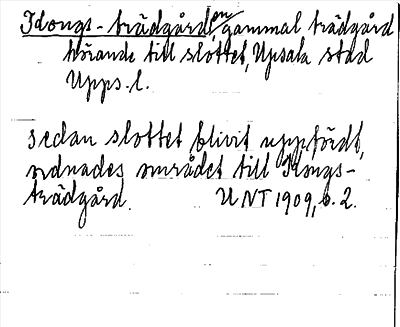 Kongs-trädgård, en gammal trädgård
hörande till slottet, Upsala stad
Upps. l.
sedan slottet blivit uppfördt,
ordnades området till Kongs-
trädgård. UNT 1909, s. 2.